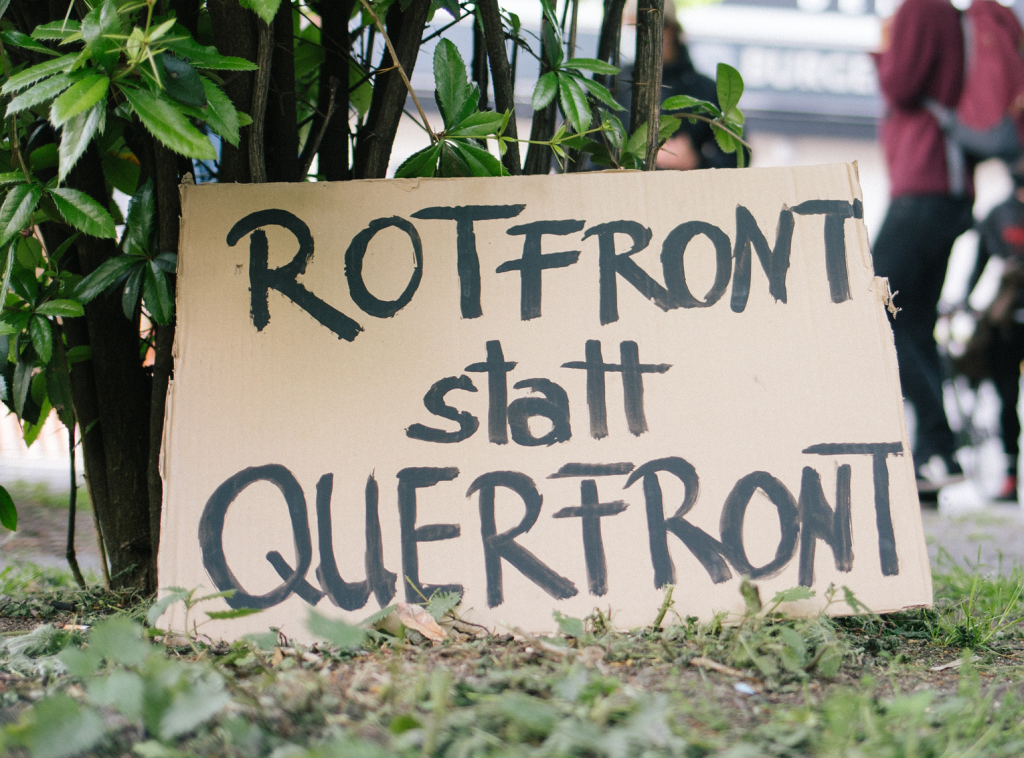 ROTFRONT
statt
QUERFRONT
BURGE